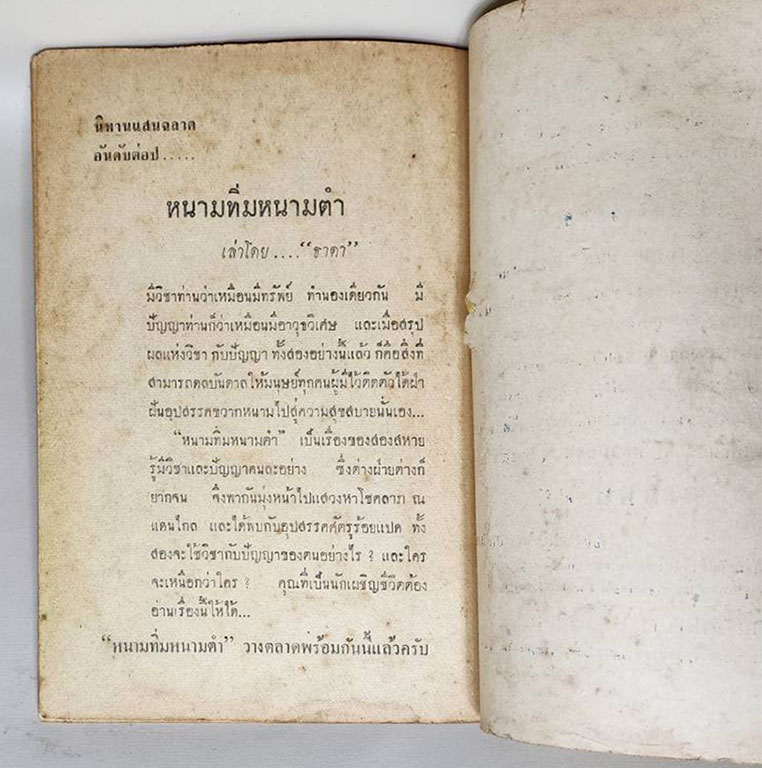 นิทานแสนฉลาด
อันดับต่อป.....
หนามทิ่มหนามตำ
เล่าโดย...."ธาดา"
มีวิชาท่านว่าเหมือนมีทรัพย์ ทำนองเดียวกัน มี
ปัญญาท่านก็ว่าเหมือนมีอาวุธวิเศษ และเมื่อสรุป
ผลแห่งวิชา กับปัญญา ทั้งสองอย่างนี้แล้ว ก็คือสิ่งที่
สามารถดลบันดาลให้มนุษย์ทุกคนผู้มีไว้ติดตัวได้ฝ่า
ฟันอุปสรรคขวากหนามไปสู่ความสุขสบายนั่นเอง...
"หนามทิ่มหนามตำ" เป็นเรื่องของสองสหาย
รู้มีวิชาและปัญญาคนละอย่าง ซึ่งต่างฝ่ายต่างก็
ยากจน จึงพากันมุ่งหน้าไปแสวงหาโชคลาภ ณ
แดนไกล และได้พบกับอุปสรรคศัตรูร้อยแปด ทั้ง
สองจะใช้วิชากับปัญญาของตนอย่างไร ? และใคร
จะเหนือกว่าใคร ? คุณที่เป็นนักเผชิญชีวิตต้อง
อ่านเรื่องนี้ให้ได้...
"หนามทิ่มหนามตำ" วางตลาดพร้อมกันนี้แล้วครับ